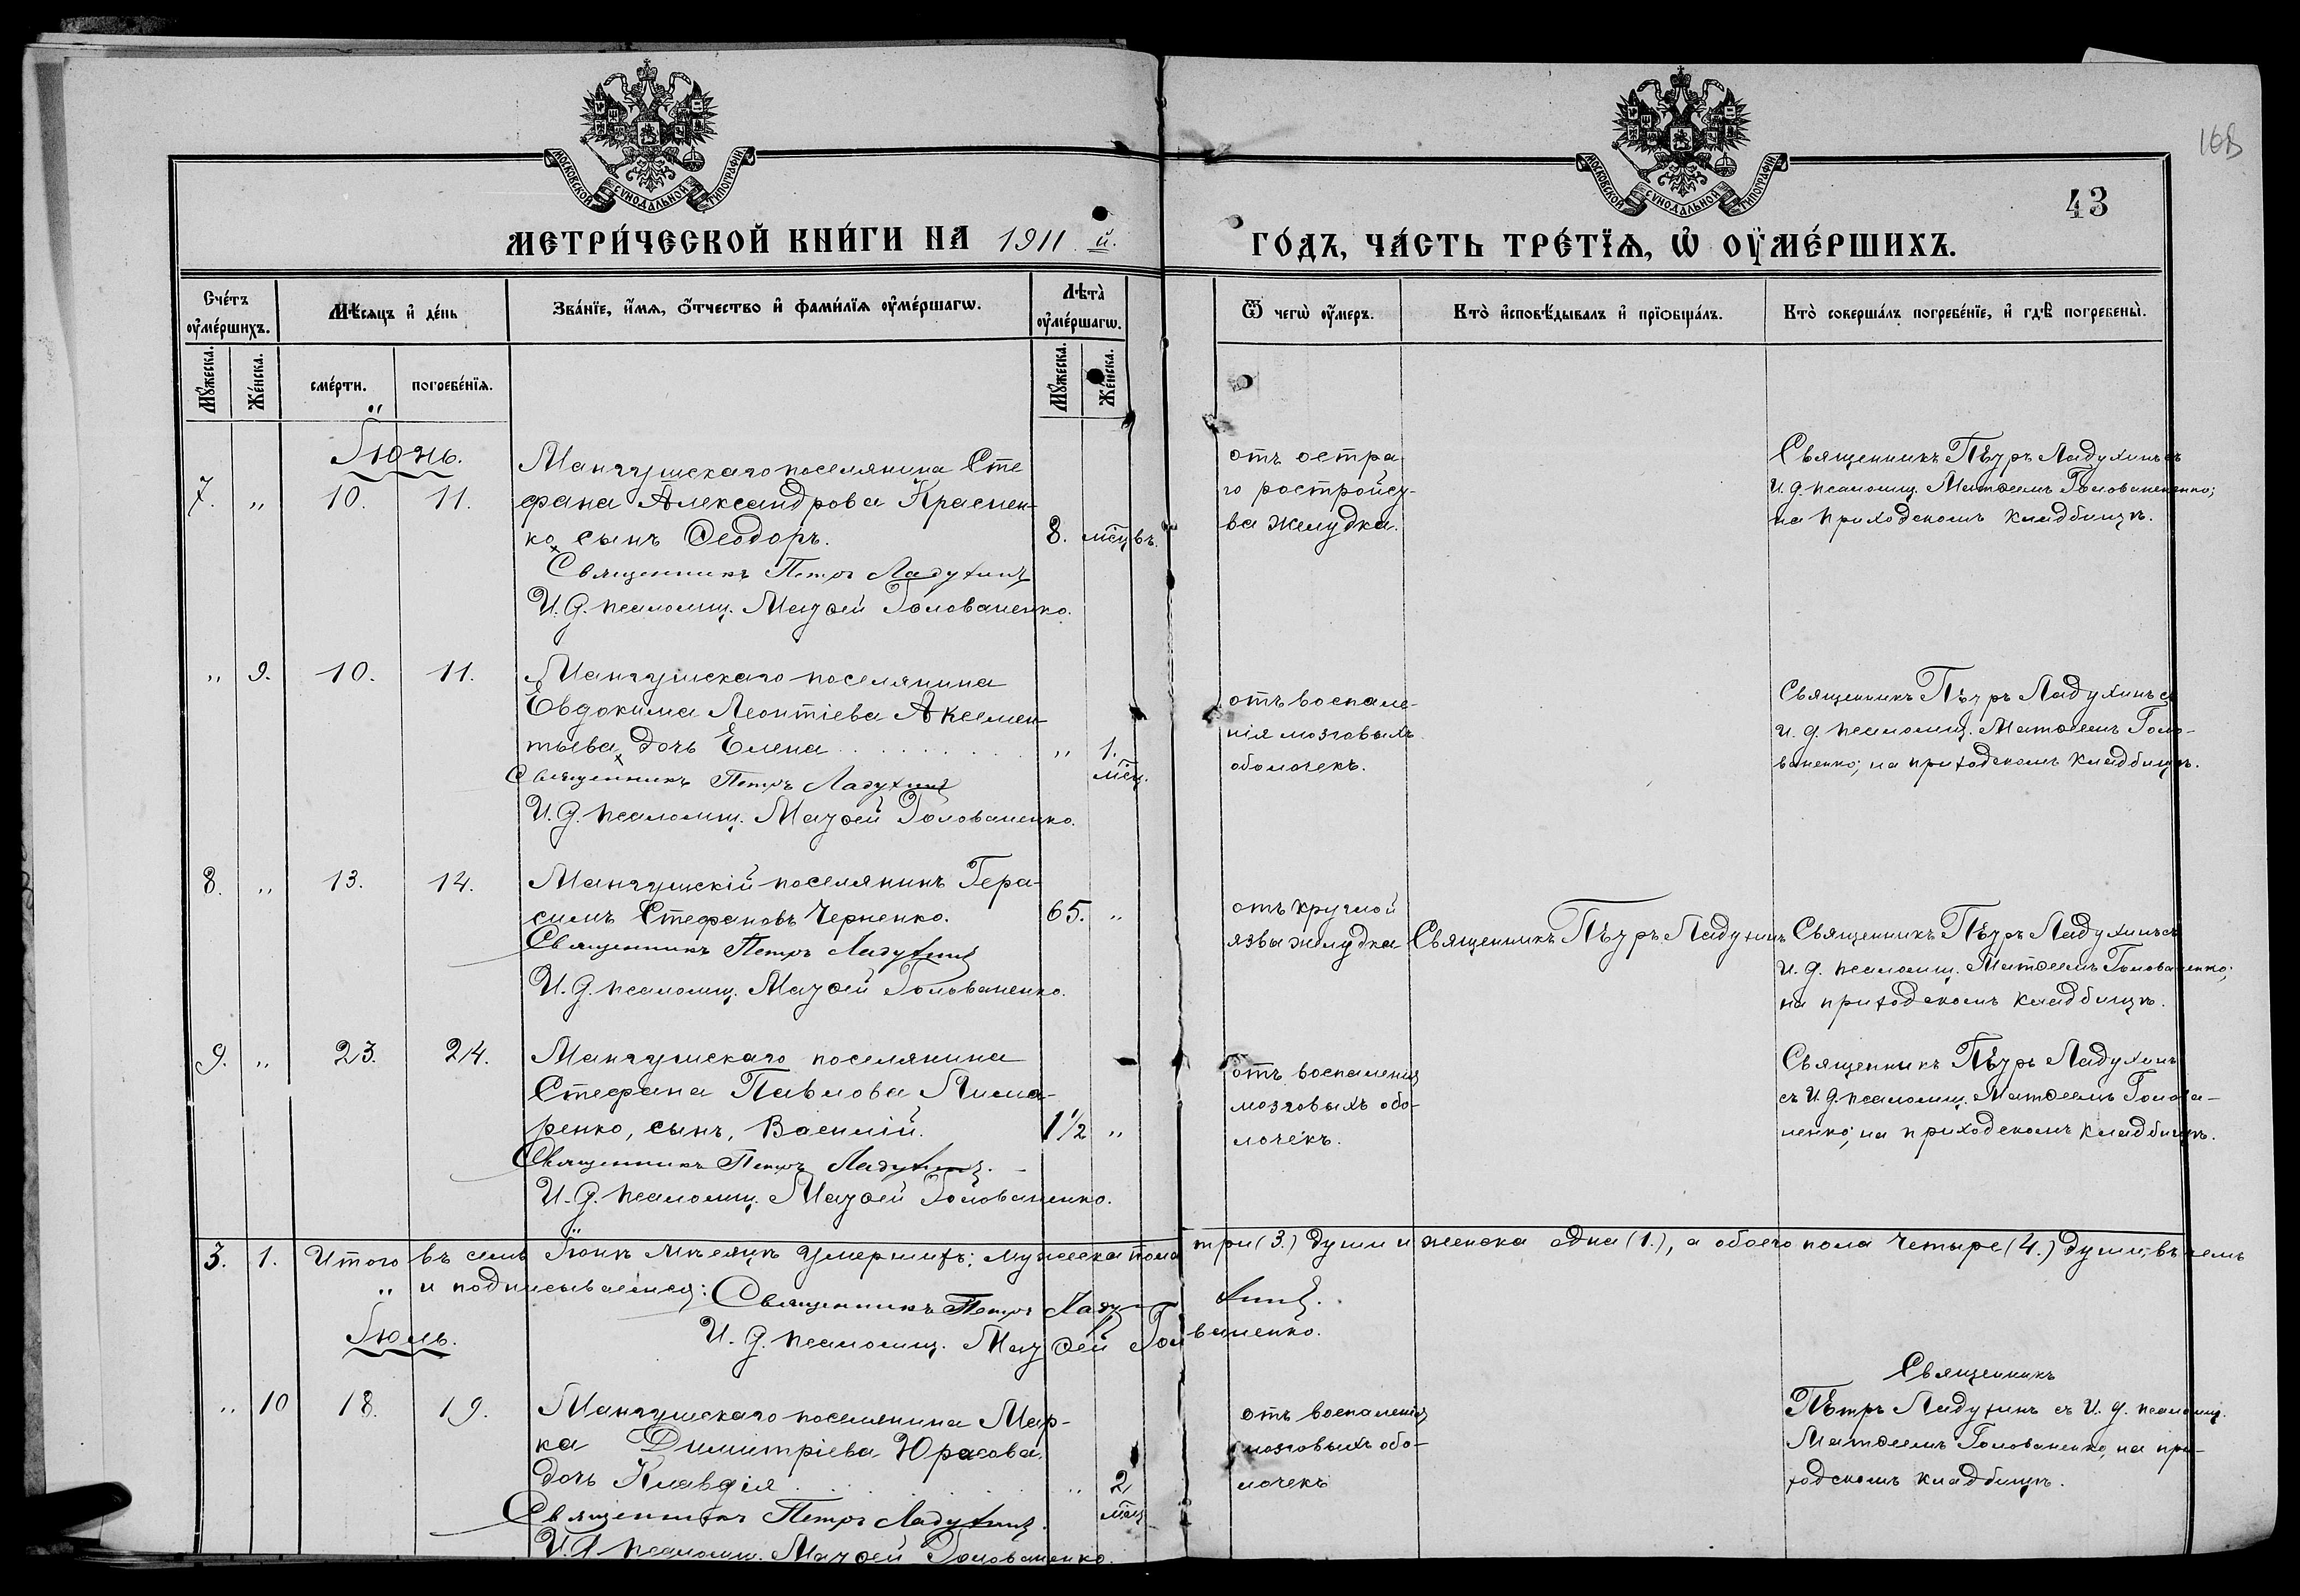 МОСКОВСКОЙ СѴНОДАЛЬНОЙ ТИПОГРАФІИ.
МОСКОВСКОЙ СѴНОДАЛЬНОЙ ТИПОГРАФІИ.
168
43
МЕТРИ́ЧЕСКОЙ КНИ́ГИ НА 1911 й.
ГО́ДЪ, ЧА́СТЬ ТРЕ́ТЇѦ, Ѡ҆ ОУ҆МЕ́РШИХЪ.
Сче́тъ оу҆ме́ршихъ.
Мѣ́сяцъ и҆ де́нь
Зва́нїе, и҆́мѧ, ѻ҆́тчество и҆ фами́лїѧ оу҆ме́ршагѡ.
Лѣта̀ оу҆ме́ршагѡ.
Ѿ чегѡ̀ оу҆́меръ.
Кто̀ и҆сповѣ́дывалъ и҆ прїѡбща́лъ.
Кто̀ соверша́лъ погребе́нїе, и҆ гдѣ̀ погребены̀.
Мꙋ́жеска.
Же́нска.
сме́рти.
погребе́нїѧ.
Мꙋ́жеска.
Же́нска.
Іюнь.
7. „ 10. 11.
Мангушскаго поселянина Сте
фана Александрова Краснен-
ко, сынъ Ѳеодоръ. 8. мсцвъ.
Священникъ Петръ Ладухинъ
И. д. псаломщ. Матѳей Голованенко.
отъ остра
го ростройст-
ва желудка.
Священникъ Пѣтръ Ладухинъ съ
И. д. псаломщ. Матѳеемъ Голованенко;
на приходскомъ кладбищѣ.
„ 9. 10. 11.
Мангушскаго поселянина
Евдокима Леонтіева Аксмен-
тьева, дочь Елена „ 1.
мсц.
Священникъ Петръ Ладухинъ
И. д. псаломщ. Матѳей Голованенко.
отъ воспале-
нія мозговыхъ
оболочекъ.
Священникъ Пѣтръ Ладухинъ съ
и. д. псаломщ. Матѳеемъ Голо-
ваненко; на приходскомъ кладбищѣ.
8. „ 13. 14.
Мангушскій поселянинъ Гера-
симъ Стефановъ Черненко. 65. „
Священникъ Петръ Ладухинъ
И. д. псаломщ. Матѳей Голованенко.
отъ круглой
язвы желудка
Священникъ Пѣтръ Ладухинъ
Священникъ Пѣтръ Ладухинъ съ
и. д. псаломщ. Матѳеемъ Голованенко;
на приходскомъ кладбищѣ.
9. „ 23. 24.
Мангушскаго поселянина
Стефана Павлова Лима-
ренко, сынъ, Василій. 1 1/2 „
Священникъ Петръ Ладухинъ.
И. д. псаломщ. Матѳей Голованенко.
отъ воспаленія
мозговыхъ обо-
лочекъ.
Священникъ Пѣтръ Ладухинъ
съ И. д. псаломщ. Матѳеемъ Голова-
ненко; на приходскомъ кладбищѣ.
3. 1. Итого въ семъ Іюнѣ мѣсяцѣ умершихъ: мужеска пола три (3.) души и женска одна (1.), а обоего пола четыре (4.) души; въ чемъ
и подписываемся: Священникъ Петръ Ладухинъ.
И. д. псаломщ. Матѳей Голованенко.
Іюль.
„ 10 18. 19.
Мангушскаго поселянина Мар-
ка Димитріева Юрасова,
дочь Клавдія „ 2
мсц
Священникъ Петръ Ладухинъ.
И. д. псаломщ. Матѳей Голованенко.
отъ воспаленія
мозговыхъ обо-
лочекъ
Священникъ
Пѣтръ Ладухинъ съ И. д. псаломщ.
Матѳеемъ Голованенко, на при-
ходскомъ кладбищѣ.